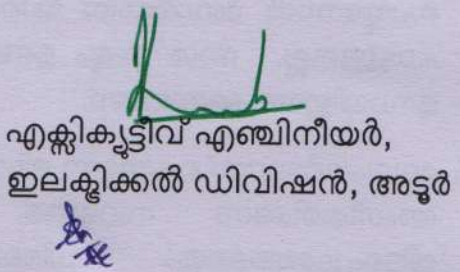 എക്സിക്യൂട്ടീവ് എഞ്ചിനീയർ,
ഇലക്ട്രിക്കൽ ഡിവിഷൻ, അടൂർ